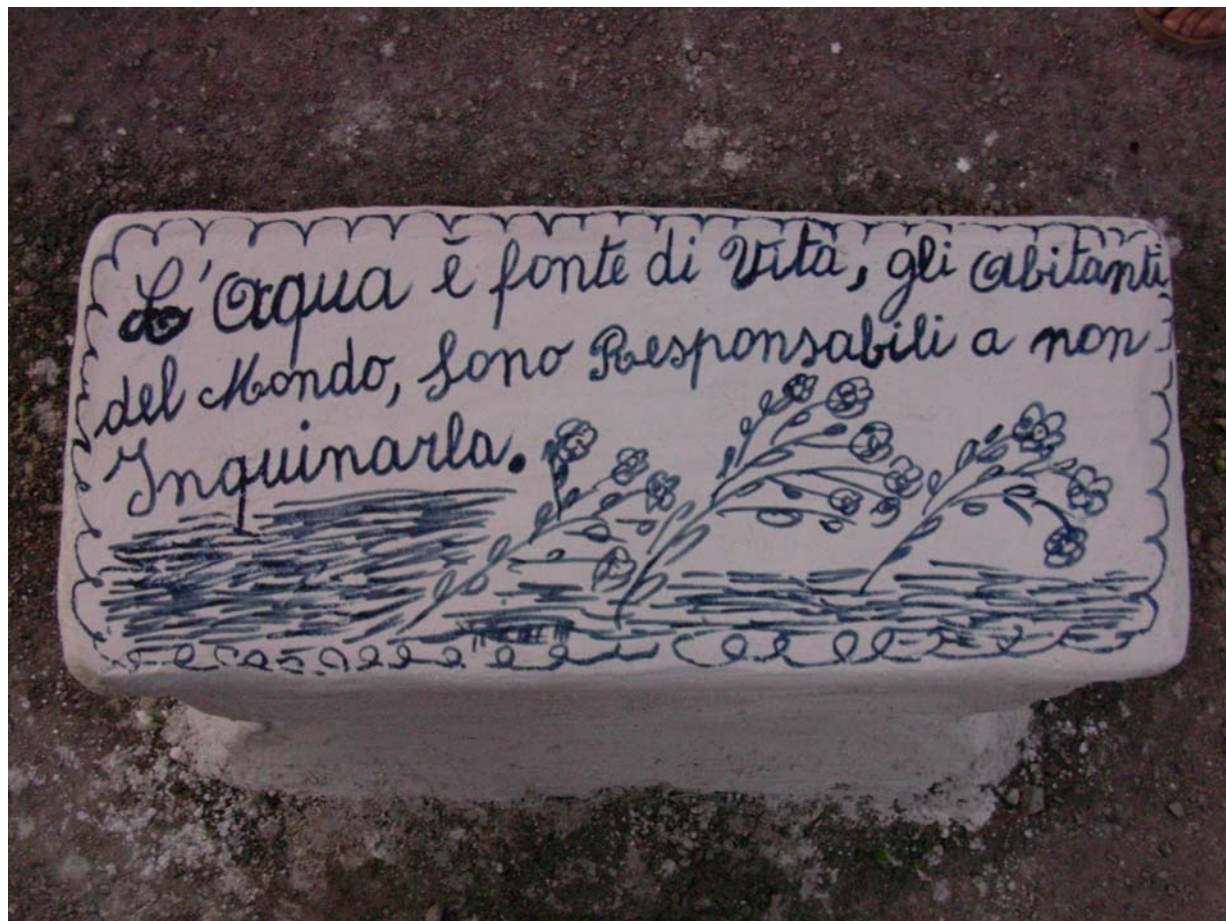 L'aqua è fonte di Vita, gli abitanti
del Mondo, sono Responsabili a non
Inquinarla.